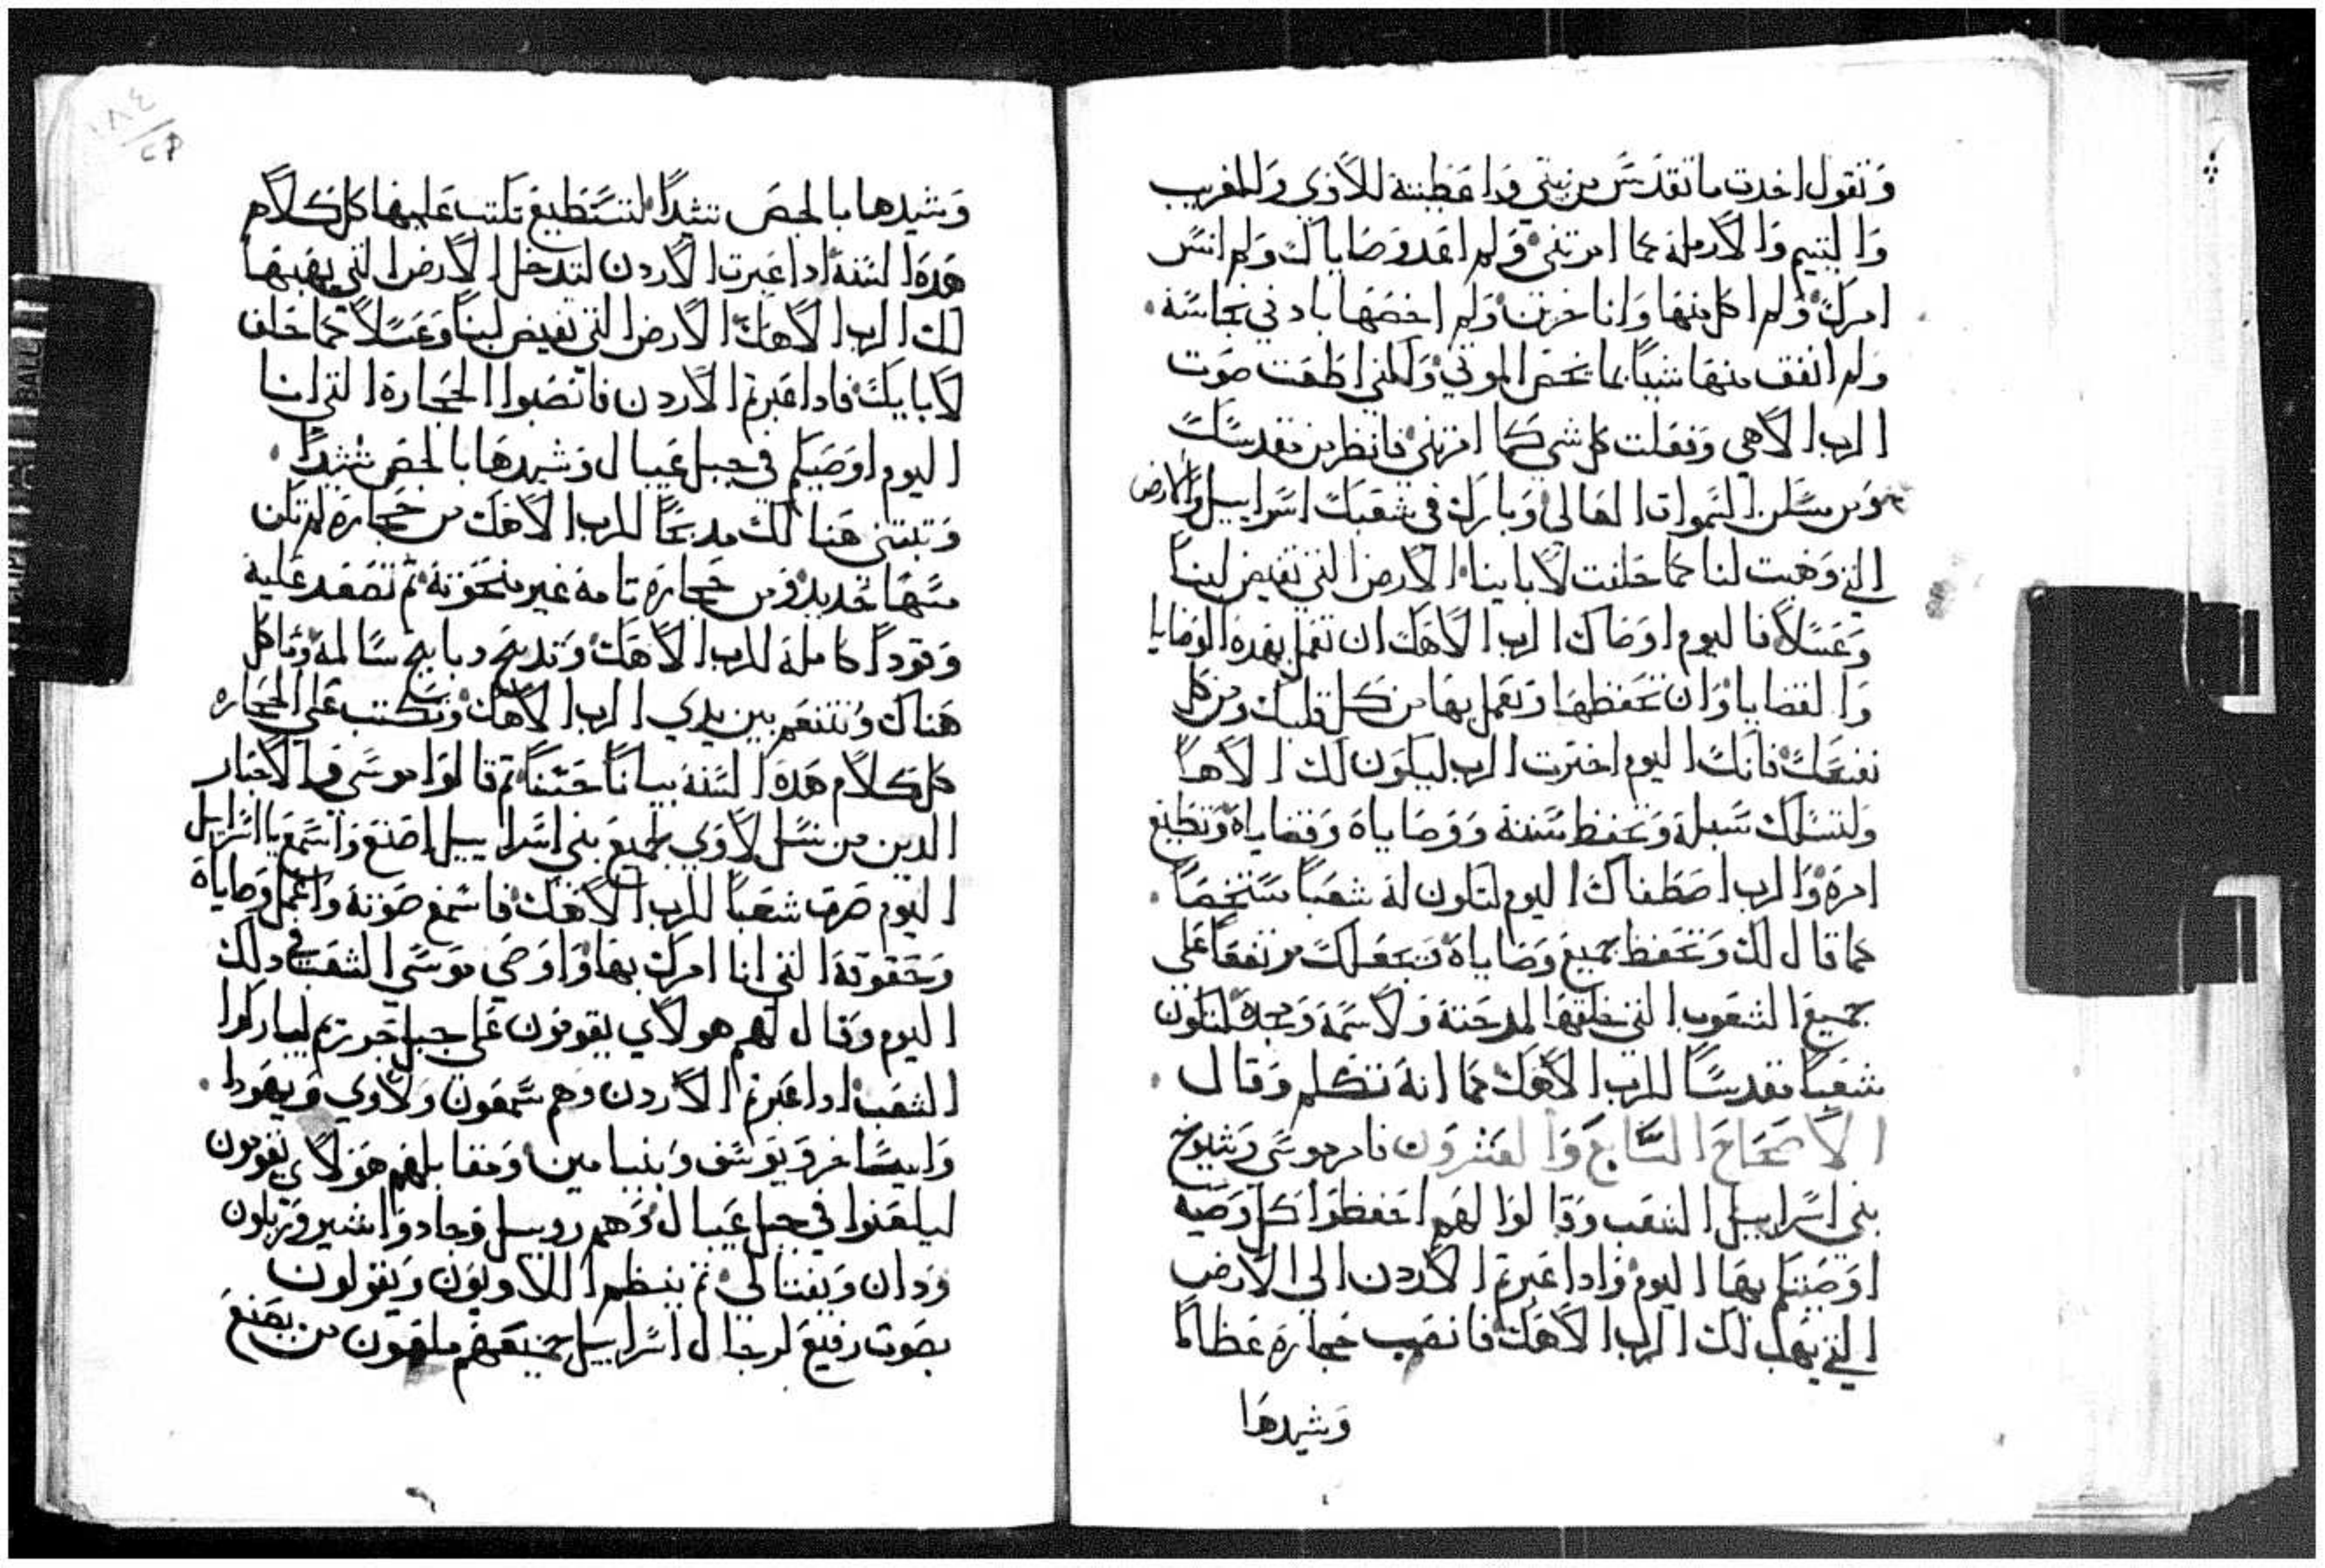 وتقول اخدت ما تقدس من بيتي واعطيته للاوي وللغريب
واليتيم والارملة كما امرتني ولم اعد وصاياك ولم انس
امرك ولم اكل منها وانا حزين ولم اخصها باد في نجاسة
ولم انفق منها شيا بما تخص الموتي ولكني اطعت صوت
الرب الاهي وفعلت كل شي كما امرتني فانظر من مقدسك
ومن مسكن السموات العالي وبارك في شعبك اسراييل والارض
التي وهبت لنا كما حلفت لاباينا الارض التي تفيض لبنا
وعسلا فاليوم اوصاك الرب الاهك ان تعمل بهده الوصايا
والقضايا وان تحفظها وتعمل بها من كل قلبك ومن كل
نفسك فانك اليوم اخترت الرب ليكون لك الاها
ولتسلك سبله وتحفظ سننه ووصاياه وقضاياه وتطيع
امره والرب اصطفاك اليوم لتكون له شعبا مستخصا
كما قال لك وتحفظ جميع وصاياه فيجعلك مرتفعا علي
جميع الشعوب التي خلقها لمدحته ولاسمه ومجده لتكون
شعبا مقدسا للرب الاهك كما انه تكلم وقال
الاصحاح السابع والعشرون فامر موسي وشيوخ
بني اسراييل الشعب وقالوا لهم احفظوا كل وصيه
اوصيتكم بها اليوم وادا عبرتم الاردن الي الارض
التي يهب لك الرب الاهك فانصب حجارة عظاما
وشيدها
وشيدها بالجص تشدا لتستطيع تكتب عليها كل كلام
هده السنة ادا عبرت الاردن لتدخل الارض التي يهبها
لك الرب الاهك الارض التي تفيض لبنا وعسلا كما حلف
لابايك فادا عبرتم الاردن فانصبوا الحجارة التي انا
اليوم اوصيكم في جبل عيبال وشيدها بالجص تشدا
وتبتني هنالك مدبحا للرب الاهك من حجارة لم تكن
مسها حديد ومن حجارة تامة غير منحوتة ثم تصعد عليه
وقودا كاملة للرب الاهك وتدبح دبايح سالمة وتاكل
هناك وتتنعم بين يدي الرب الاهك وتكتب علي الحجاره
كل كلام هده السنة بيانا حسنا ثم قالوا موسي والاحبار
الدين من نسل لاوي لجميع بني اسراييل اصنع واسمع يا اسراييل
اليوم صرت شعبا للرب الاهك فاسمع صوته واعمل وصاياه
وحقوقه التي انا امرك بها واوصي موسي الشعب في دلك
اليوم وقال لهم هولاي يقومون علي جبل جوريم ليباركوا
الشعب ادا عبرتم الاردن وهم شمعون ولاوي ويهودا
وايساخر ويوسف وبنيامين ومقابلهم هولاي يقومون
ليلعنوا في جبل عيبال وهم روبيل وجاد واشير وزبلون
ودان ونفتالي ثم ينظم اللاويون ويقولون
بصوت رفيع لرجال اسراييل جميعهم ملعون من يصنع